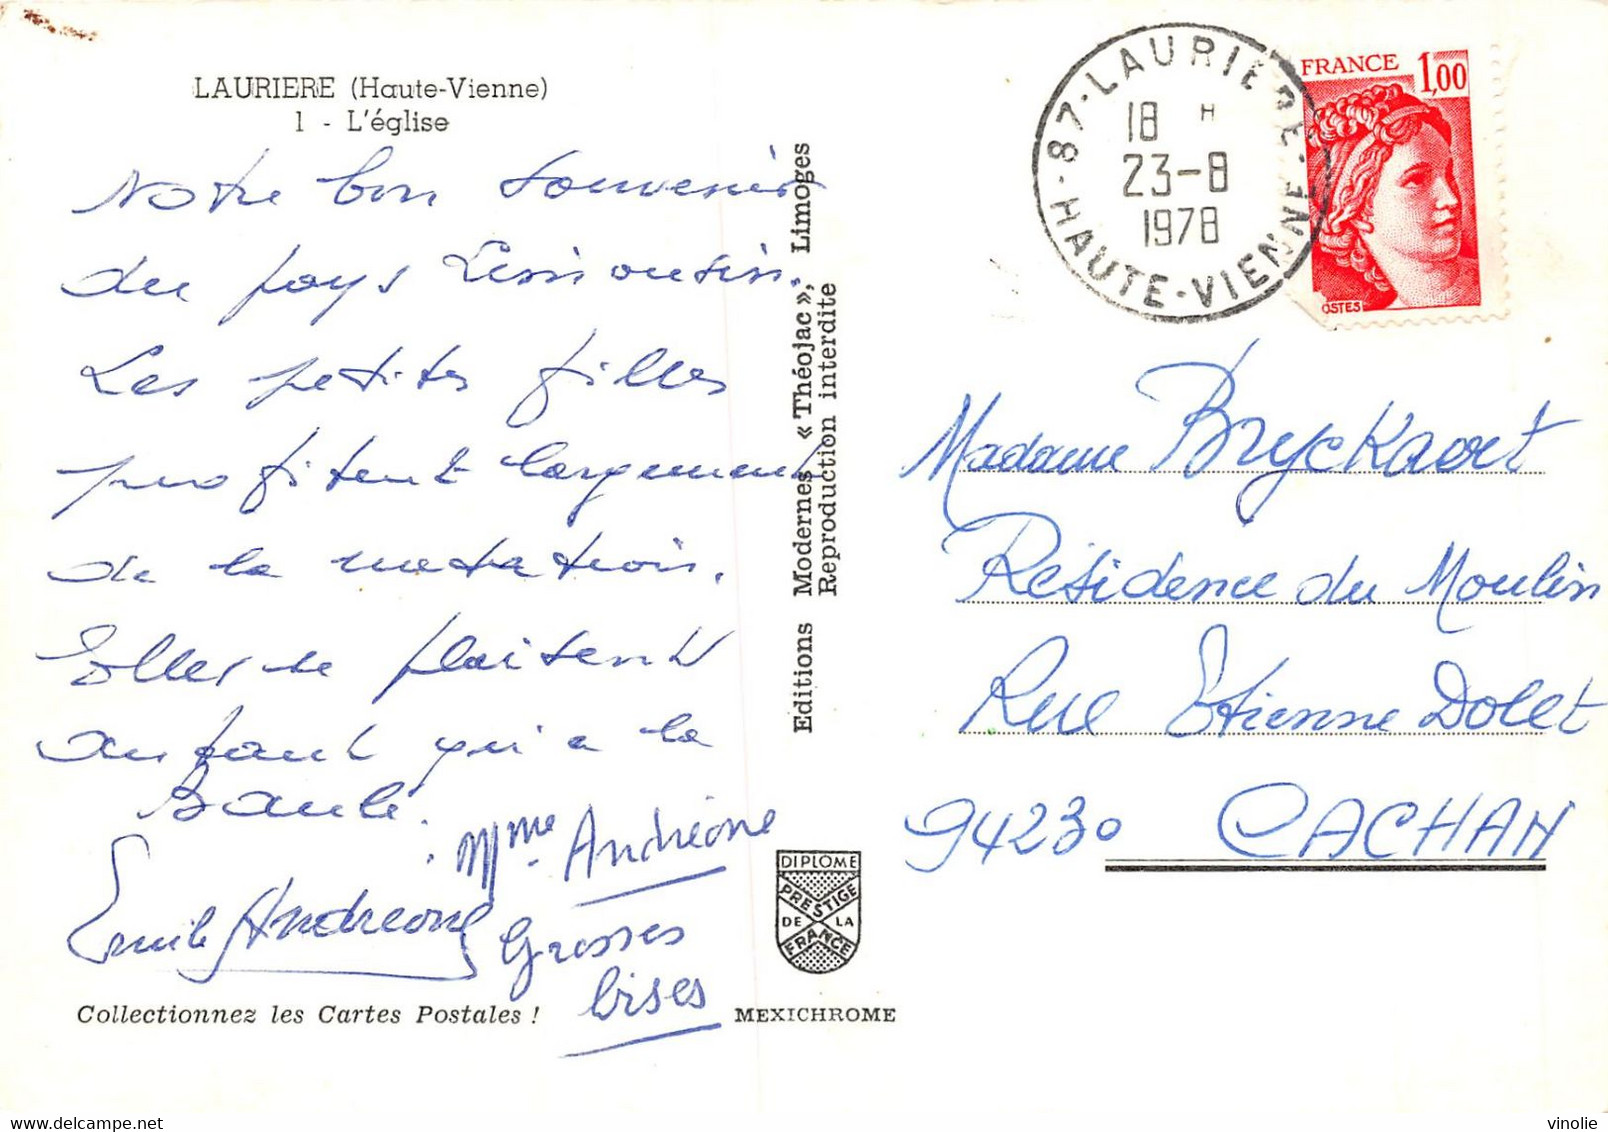 LAURIERE (Haute-Vienne)
1 - L'église
Notre bon souvenir
du pays Limousin.
Les petites filles
profitent largement
de la natation.
Elles se plaisent
autant qu'a la
Baule.
Mme Andréone
Emile Andreone
Grosses
bises
Collectionnez les Cartes Postales !
Editions Modernes « Théojac », Limoges
Reproduction interdite
DIPLOME
PRESTIGE
DE LA
FRANCE
MEXICHROME
87 - LAURIERE
18 H
23-8
1978
HAUTE-VIENNE
FRANCE 1,00
OSTES
Madame Bryckaert
Résidence du Moulin
Rue Etienne Dolet
94230 CACHAN
vinolie